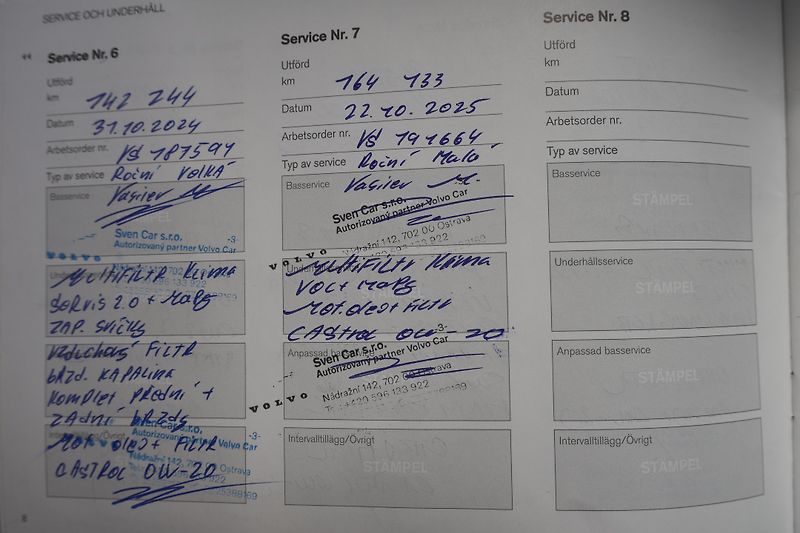 SERVICE OCH UNDERHÅLL
Service Nr. 6
Utförd
km 142 244
Datum 31.10.2024
Arbetsorder nr. VS 187594
Typ av service Roční VELKÁ
Basservice Vasilev M
Sven Car s.r.o.
Autorizovaný partner Volvo Car
VOLVO
MULTIFILTR KLIMA
SERVIS 2.0 + MAPY
ZAP. SVÍČKY
VZDUCHOVÝ FILTR
BRZD. KAPALINA
KOMPLET PŘEDNÍ +
ZADNÍ BRZDY
Intervalltillägg/Övrigt
MOT. OLEJ + FILTR
CASTROL 0W-20
Sven Car s.r.o.
Autorizovaný partner Volvo Car
Nádražní 142, 702 00 Ostrava
8
Service Nr. 7
Utförd
km 164 133
Datum 22.10.2025
Arbetsorder nr. VS 191664
Typ av service Roční Malá
Basservice Vasilev M.
STÄMPEL
Sven Car s.r.o.
Autorizovaný partner Volvo Car
Nádražní 142, 702 00 Ostrava
VOLVO
MULTIFILTR KLIMA
VOL+ MAPY
MOT. OLEJ + FILTR
CASTROL 0W-20
-3-
Anpassad basservice
Sven Car s.r.o.
Autorizovaný partner Volvo Car
Nádražní 142, 702 00 Ostrava
Tel.: +420 596 133 922
VOLVO
Intervalltillägg/Övrigt
STÄMPEL
Service Nr. 8
Utförd
km
Datum
Arbetsorder nr.
Typ av service
Basservice
STÄMPEL
Underhållsservice
STÄMPEL
Anpassad basservice
STÄMPEL
Intervalltillägg/Övrigt
STÄMPEL